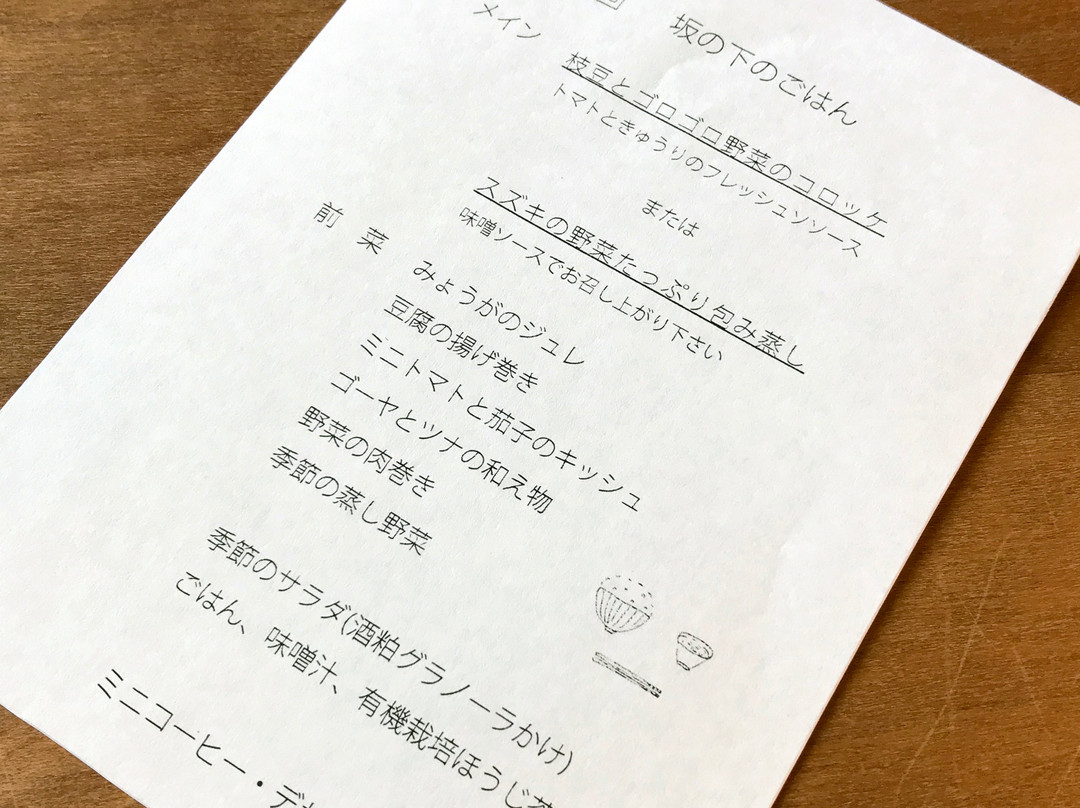 坂の下のごはん
メイン
枝豆とゴロゴロ野菜のコロッケ
トマトときゅうりのフレッシュソソース
または
スズキの野菜たっぷり包み蒸し
味噌ソースでお召し上がり下さい
前 菜
みょうがのジュレ
豆腐の揚げ巻き
ミニトマトと茄子のキッシュ
ゴーヤとツナの和え物
野菜の肉巻き
季節の蒸し野菜
季節のサラダ(酒粕グラノーラかけ)
ごはん、味噌汁、有機栽培ほうじ茶
ミニコーヒー・デ